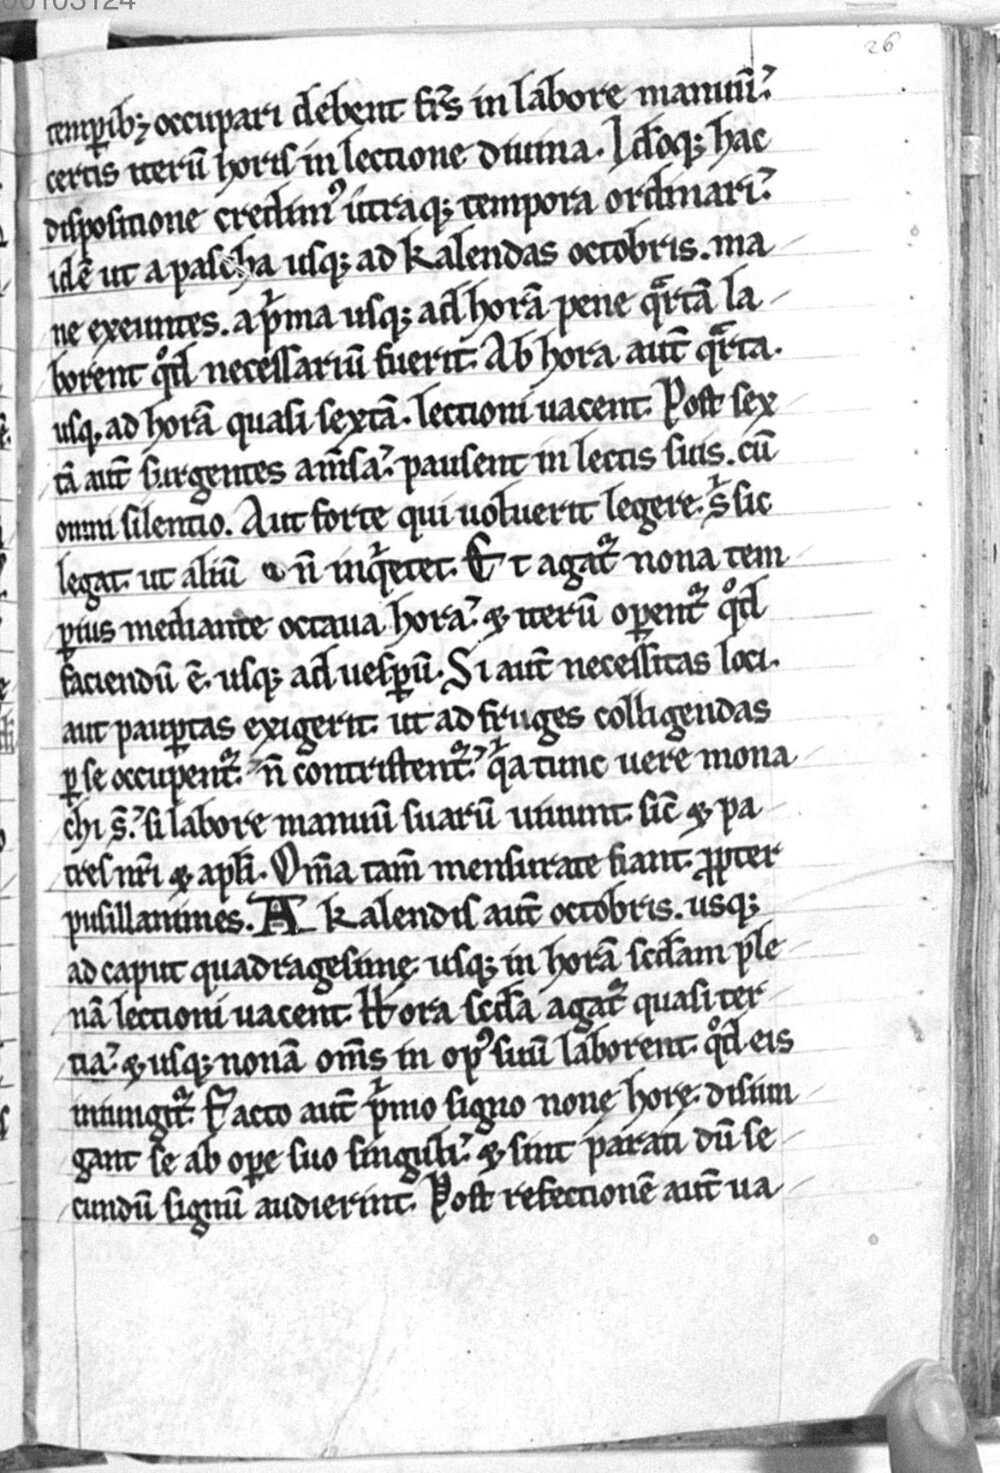 00103124
26
temp̲ib; occupari debent fr̄s in labore manuū.
certis iterū horis in lectione diuina. Idoq; hac
dispositione credim᷒ utraq; tempora ordinari.
idē ut a pascha usq; ad kalendas octobris. ma
ne exeuntes. a pⁱma usq; ad horā pene qᵃrtā la
borent qͦd necessariū fuerit. Ab hora aut̄ qᵃrta.
usq; ad horā quasi sextā. lectioni uacent. Post sex
tā aut̄ surgentes a mēsa. pausent in lectis suis. cū
omni silentio. Aut forte qui uoluerit legere. sⁱ sic
legat. ut aliū n̄ inqⁱetet. Et agat᷑ nona tem
p̲ius mediante octaua hora. & iterū op̲ent᷑ qͦd
faciendū ē. usq; ad uesp̲ū. Si aut̄ necessitas loci.
aut paup̲tas exigerit. ut ad fruges colligendas
p̲ se occupent᷑. n̄ contristent᷑. qⁱa tunc uere mona
chi s̄. si labore manuū suarū uiuunt. sic̄ & pa
tres nr̄i & apl̄i. Om̄a tam̄ mensurate fiant. ꝓpter
pusillanimes. A kalendis aut̄ octobris. usq;
ad caput quadragesimę. usq; in horā scd̄am ple
nā lectioni uacent. Hora scd̄a agat᷑ quasi ter
tia. & usq; nonā om̄s in op᷒ suū laborent. qͦd eis
iniungit᷑. Facto aut̄ pⁱmo signo nonę horę. disiun
gant se ab op̲e suo singuli. & sint parati dū se
cundū signū audierint. Post refectionē aut̄ ua